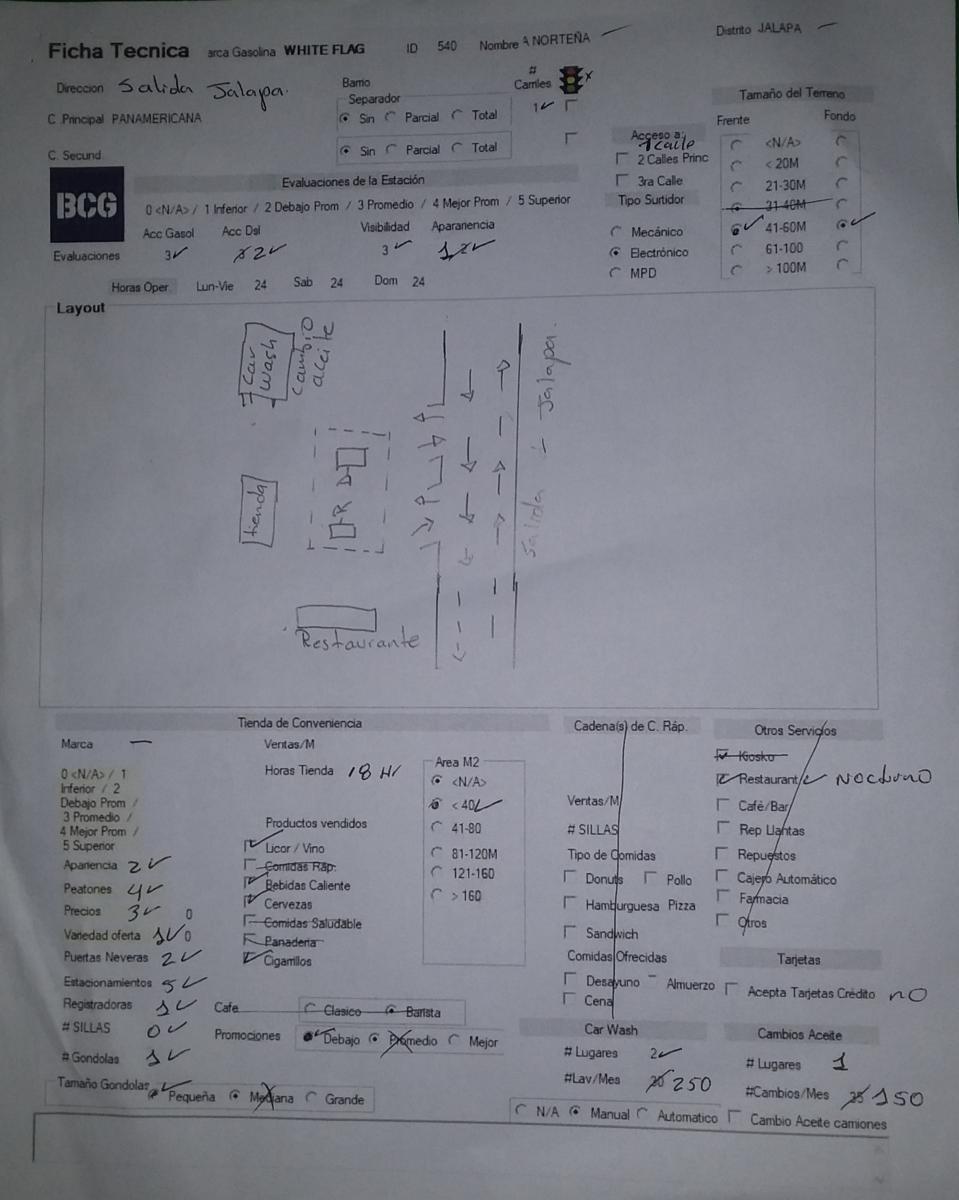 Ficha Tecnica arca Gasolina WHITE FLAG ID 540 Nombre A NORTEÑA Distrito JALAPA
Direccion Salida Jalapa. Barrio # Carriles
C .Principal PANAMERICANA Separador Sin Parcial Total 1
C. Secund Sin Parcial Total
Acceso a: 1 calle
2 Calles Princ
3ra Calle
Tipo Surtidor
Mecánico
Electrónico
MPD
Tamaño del Terreno
Frente Fondo
<N/A>
< 20M
21-30M
31-40M
41-60M
61-100
> 100M
BCG
Evaluaciones de la Estación
0 <N/A> / 1 Inferior / 2 Debajo Prom / 3 Promedio / 4 Mejor Prom / 5 Superior
Acc Gasol Acc Dsl Visibilidad Aparariencia
Evaluaciones 3 2 3 1
Horas Oper. Lun-Vie 24 Sab 24 Dom 24
Layout
Car wash
Cambio aceite
tienda
R D
Restaurante
Salida - Jalapa.
Tienda de Conveniencia
Marca —
0 <N/A> / 1
Inferior / 2
Debajo Prom /
3 Promedio /
4 Mejor Prom /
5 Superior
Apariencia 2
Peatones 4
Precios 3 0
Variedad oferta 1 0
Puertas Neveras 2
Estacionamientos 5
Registradoras 1
# SILLAS 0
# Gondolas 1
Tamaño Gondolas Pequeña Mediana Grande
Ventas/M
Horas Tienda 18 Hr
Productos vendidos
Licor / Vino
Comidas Ráp.
Bebidas Caliente
Cervezas
Comidas Saludable
Panaderia
Cigarrillos
Cafe Clasico Barista
Promociones Debajo Promedio Mejor
Area M2
<N/A>
< 40
41-80
81-120M
121-160
> 160
Cadena(s) de C. Ráp.
Ventas/M
# SILLAS
Tipo de Comidas
Donuts Pollo
Hamburguesa Pizza
Sandwich
Comidas Ofrecidas
Desayuno Almuerzo
Cena
Car Wash
# Lugares 2
#Lav/Mes 20 250
N/A Manual Automatico
Otros Servicios
Kiosko
Restaurant Nocturno
Café/Bar
Rep Llantas
Repuestos
Cajero Automático
Farmacia
Otros
Tarjetas
Acepta Tarjetas Crédito no
Cambios Aceite
# Lugares 1
#Cambios/Mes 25 150
Cambio Aceite camiones